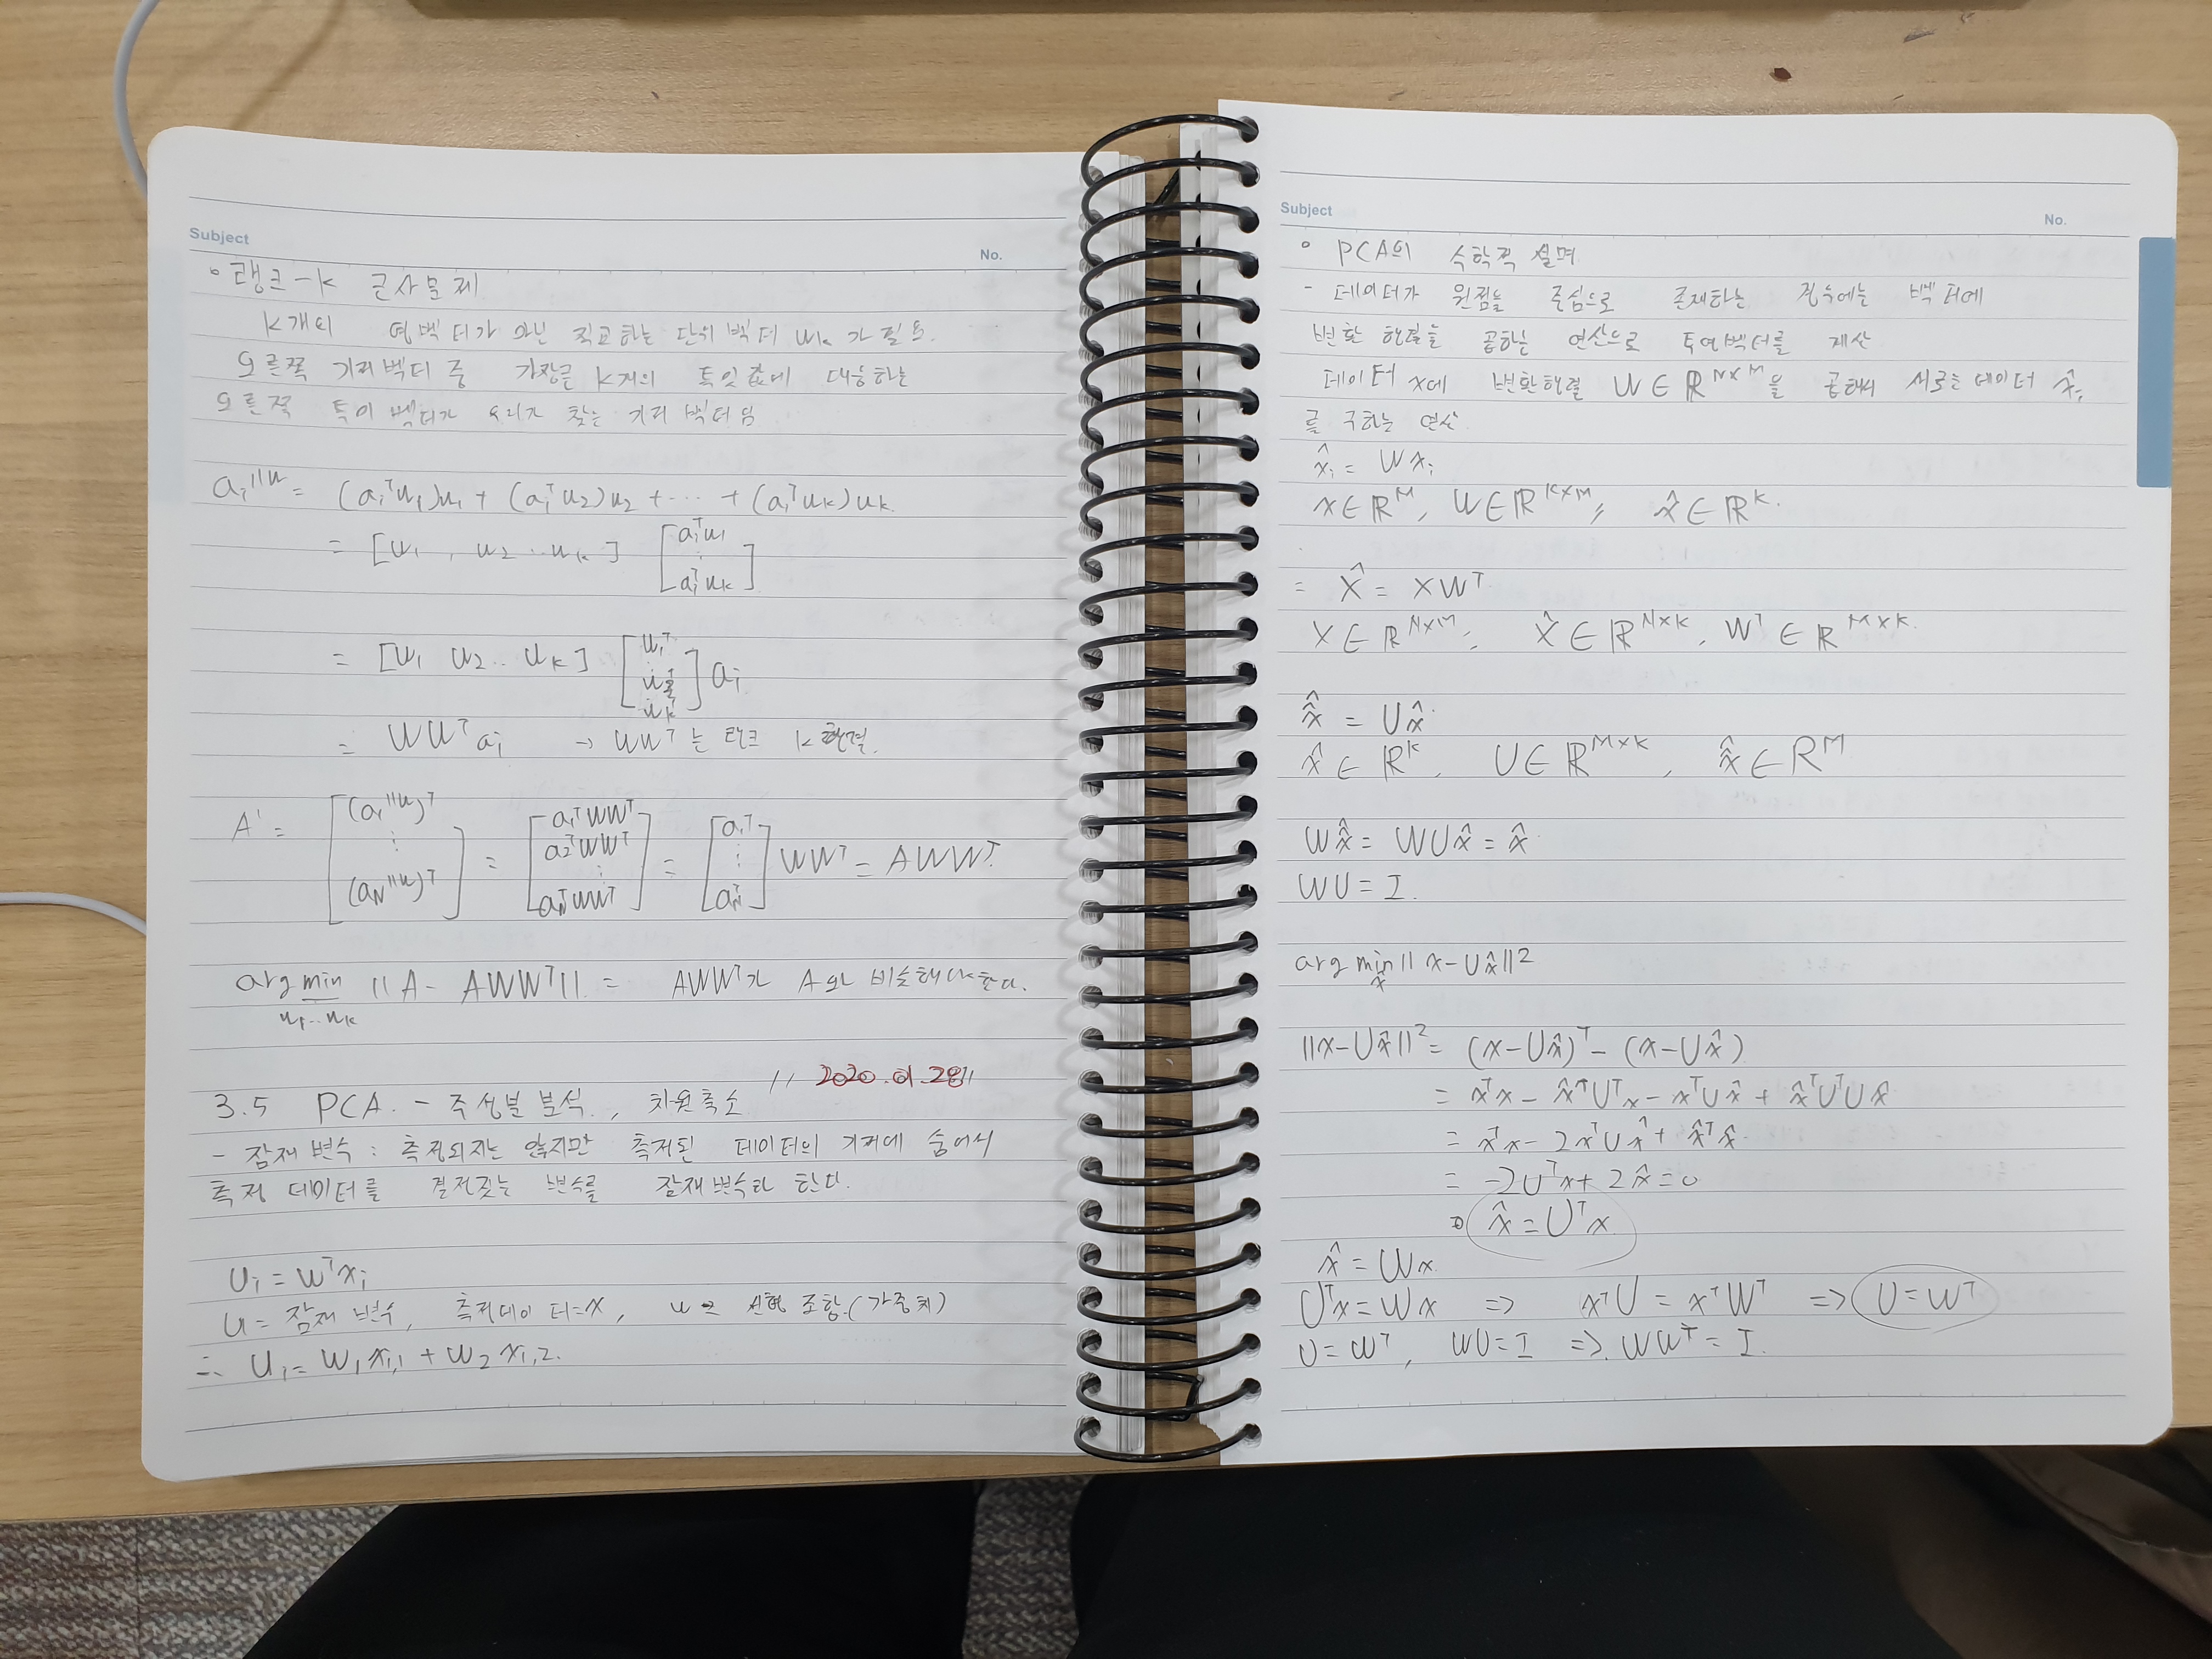 Subject
No.
◦ 랭크-k 근사문제
K개의 영벡터가 아닌 직교하는 단위 벡터 wₖ가 필요.
오른쪽 기저벡터 중 가장큰 k개의 특잇값에 대응하는
오른쪽 특이 벡터가 우리가 찾는 기저 벡터임
aᵢ^∥w = (aᵢᵀw₁)w₁ + (aᵢᵀw₂)w₂ + ··· + (aᵢᵀwₖ)wₖ.
= [w₁, w₂ ·· wₖ] [aᵢᵀw₁ ⋮ aᵢᵀwₖ]
= [w₁ w₂ ·· wₖ] [w₁ᵀ w₂ᵀ wₖᵀ] aᵢ
= WWᵀaᵢ → WWᵀ는 랭크 K행렬.
A' = [(a₁^∥w)ᵀ ⋮ (a_N^∥w)ᵀ] = [a₁ᵀWWᵀ a₂ᵀWWᵀ ⋮ a_NᵀWWᵀ] = [a₁ᵀ ⋮ a_Nᵀ] WWᵀ = AWWᵀ.
arg min ||A - AWWᵀ|| = AWWᵀ가 A와 비슷해야한다.
w₁...wₖ
// 2020.01.28 //
3.5 PCA. - 주성분 분석., 차원축소
- 잠재 변수 : 측정되지는 않지만 측정된 데이터의 기저에 숨어서
측정 데이터를 결정짓는 변수를 잠재변수라 한다.
uᵢ = wᵀxᵢ
u = 잠재 변수, 측정데이터=x, w는 선형 조합(가중치)
∴ uᵢ = w₁xᵢ,₁ + w₂xᵢ,₂.
Subject
No.
◦ PCA의 수학적 설명
- 데이터가 원점을 중심으로 존재하는 경우에는 벡터에
변환 행렬을 곱하는 연산으로 투영벡터를 계산
데이터 x에 변환행렬 W∈ℝᴺˣᴹ을 곱해서 새로운데이터 x̂ᵢ
를 구하는 연산.
x̂ᵢ = Wxᵢ
x∈ℝᴹ, W∈ℝᴷˣᴹ, x̂∈ℝᴷ.
= X̂ = XWᵀ
X∈ℝᴺˣᴹ, X̂∈ℝᴺˣᴷ, Wᵀ∈ℝᴹˣᴷ.
x̂̂ = Ux̂
x̂∈ℝᴷ, U∈ℝᴹˣᴷ, x̂̂∈ℝᴹ
Wx̂̂ = WUx̂ = x̂
WU = I
arg min || x-Ux̂ ||²
x̂
||x-Ux̂||² = (x-Ux̂)ᵀ - (x-Ux̂)
= xᵀx - x̂ᵀUᵀx - xᵀUx̂ + x̂ᵀUᵀUx̂
= xᵀx - 2xᵀUx̂ + x̂ᵀx̂
= -2Uᵀx + 2x̂ = 0
⇒ x̂ = Uᵀx
x̂ = Wx
Uᵀx = Wx => xᵀU = xᵀWᵀ => U = Wᵀ
U = Wᵀ, WU = I => WWᵀ = I.